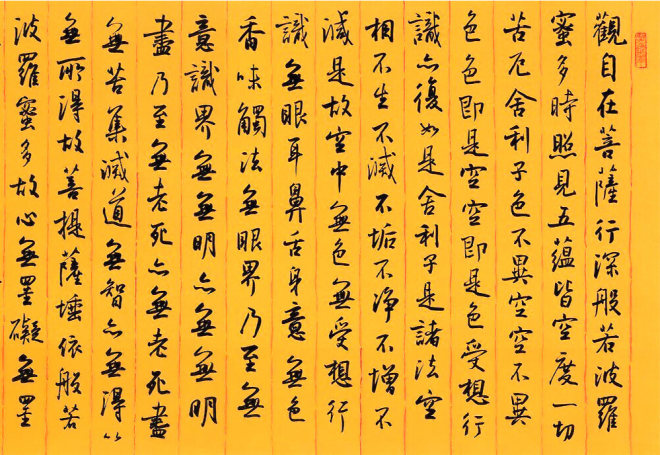 觀自在菩薩行深般若波羅
蜜多時照見五蘊皆空度一切
苦厄舍利子色不異空空不異
色色即是空空即是色受想行
識亦復如是舍利子是諸法空
相不生不滅不垢不净不增不
減是故空中無色無受想行
識無眼耳鼻舌身意無色
香味觸法無眼界乃至無
意識界無無明亦無無明
盡乃至無老死亦無老死盡
無苦集滅道無智亦無得以
無所得故菩提薩埵依般若
波羅蜜多故心無罣礙無罣